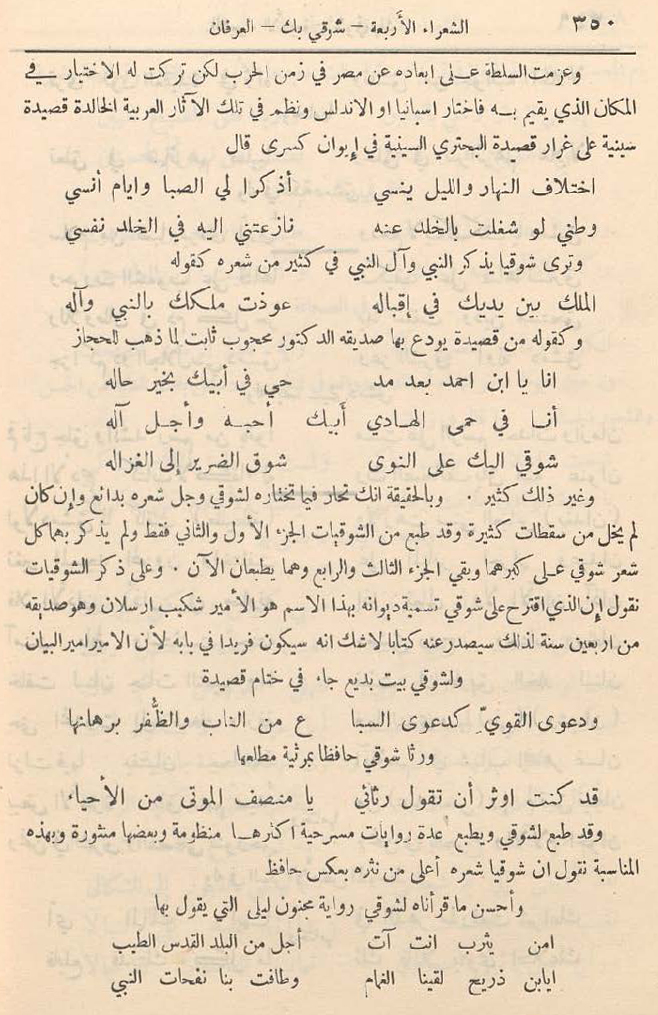 ٣٥٠ الشعراء الأربعة – شوقي بك – العرفان
وعزمت السلطة على ابعاده عن مصر في زمن الحرب لكن تركت له الاختيار في
المكان الذي يقيم به فاختار اسبانيا او الاندلس ونظم في تلك الآثار العربية الخالدة قصيدة
سينية على غرار قصيدة البحتري السينية في إيوان كسرى قال
اختلاف النهار والليل ينسي أذكرا لي الصبا وايام أنسي
وطني لو شغلت بالخلد عنه نازعتني اليه في الخلد نفسي
وترى شوقيا يذكر النبي وآل النبي في كثير من شعره كقوله
الملك بين يديك في إقباله عوذت ملكك بالنبي وآله
وكقوله من قصيدة يودع بها صديقه الدكتور محجوب ثابت لما ذهب للحجاز
انا يا ابن احمد بعد مد حي في أبيك بخير حاله
أنا في حمى الهادي أبيك أحبه وأجل آله
شوقي اليك على النوى شوق الضرير إلى الغزاله
وغير ذلك كثير . وبالحقيقة انك تحار فيما تختاره لشوقي وجل شعره بدائع وإن كان
لم يخل من سقطات كثيرة وقد طبع من الشوقيات الجزء الأول والثاني فقط ولم يذكر بهما كل
شعر شوقي على كبرهما وبقي الجزء الثالث والرابع وهما يطبعان الآن . وعلى ذكر الشوقيات
نقول إن الذي اقترح على شوقي تسمية ديوانه بهذا الاسم هو الأمير شكيب ارسلان وهو صديقه
من اربعين سنة لذلك سيصدر عنه كتابا لا شك انه سيكون فريدا في بابه لأن الامير امير البيان
ولشوقي بيت بديع جاء في ختام قصيدة
ودعوى القويّ كدعوى السبا ع من الناب والظُّفر برهانها
ورثا شوقي حافظا بمرثية مطلعها
قد كنت اوثر أن تقول رثائي يا منصف الموتى من الأحياء
وقد طبع لشوقي ويطبع عدة روايات مسرحية اكثرها منظومة وبعضها منثورة وبهذه
المناسبة نقول ان شوقيا شعره أعلى من نثره بعكس حافظ
وأحسن ما قرأناه لشوقي رواية مجنون ليلى التي يقول بها
امن يثرب انت آت أجل من البلد القدس الطيب
ايابن ذريح لقينا الغمام وطافت بنا نفحات النبي